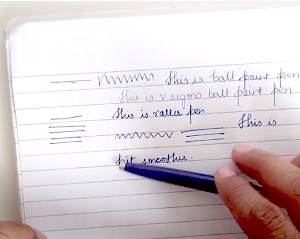 This is ball point pen
This is v sigma ball point pen
This is roller pen
This is
bit smoother.